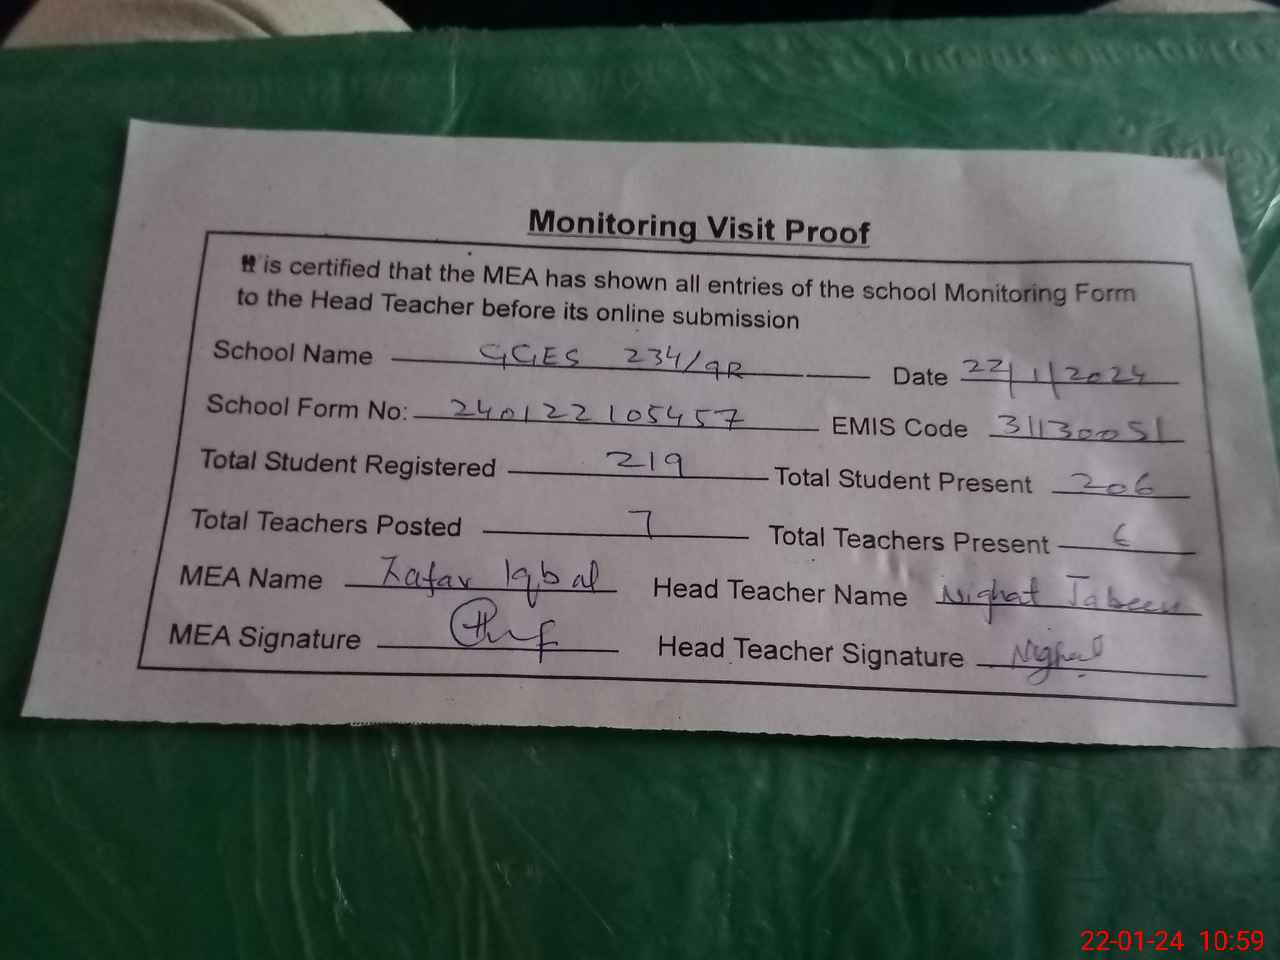 Monitoring Visit Proof
It is certified that the MEA has shown all entries of the school Monitoring Form
to the Head Teacher before its online submission
School Name GGES 234/9R Date 22/1/2024
School Form No: 240122105457 EMIS Code 31130051
Total Student Registered 219 Total Student Present 206
Total Teachers Posted 7 Total Teachers Present 6
MEA Name Zafar Iqbal Head Teacher Name Nighat Jabeen
MEA Signature Head Teacher Signature Nighat
22-01-24 10:59